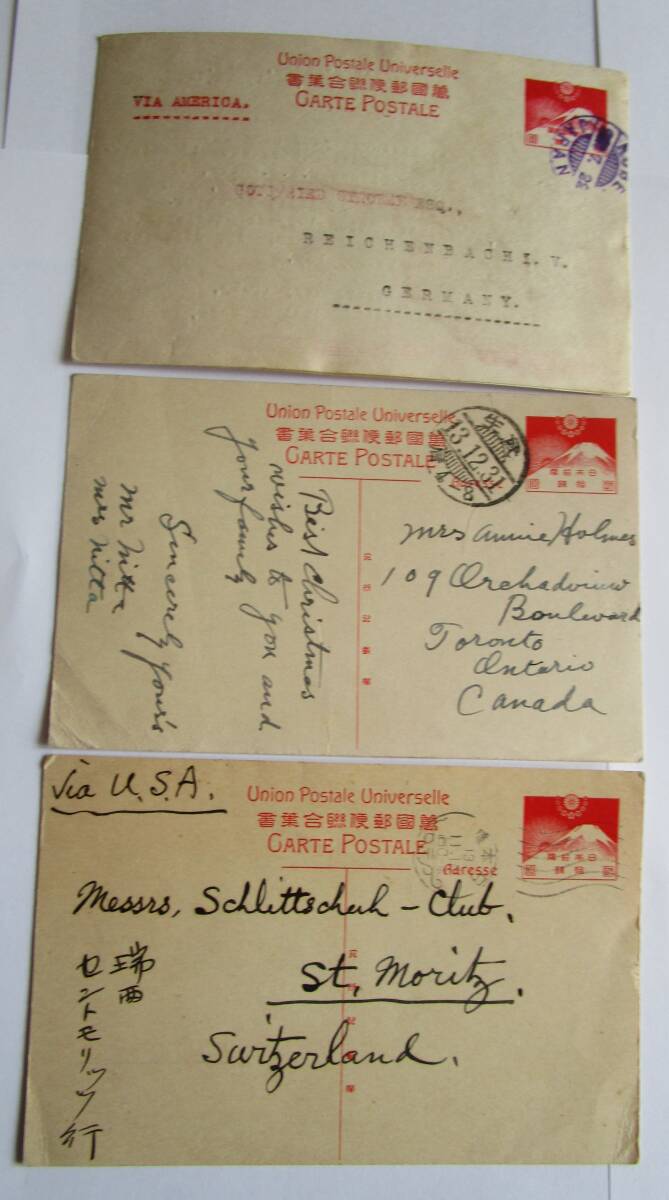 Union Postale Universelle
書葉合聯便郵國萬
CARTE POSTALE
VIA AMERICA.
ESQ.,
REICHENBACH I. V.
GERMANY.
Union Postale Universelle
書葉合聯便郵國萬
CARTE POSTALE
13.12.
Best Christmas
wishes to you and
your family
Sincerely Your's
Mr Nitta
Mrs Nitta
Mrs Annie Holmes
109 Orchadview
Boulevard
Toronto
Ontario
Canada
Via U.S.A.
Union Postale Universelle
書葉合聯便郵國萬
CARTE POSTALE
Adresse
Messrs, Schlittschuh-Club.
St, Moritz,
Switzerland.
瑞西
セントモリッツ行